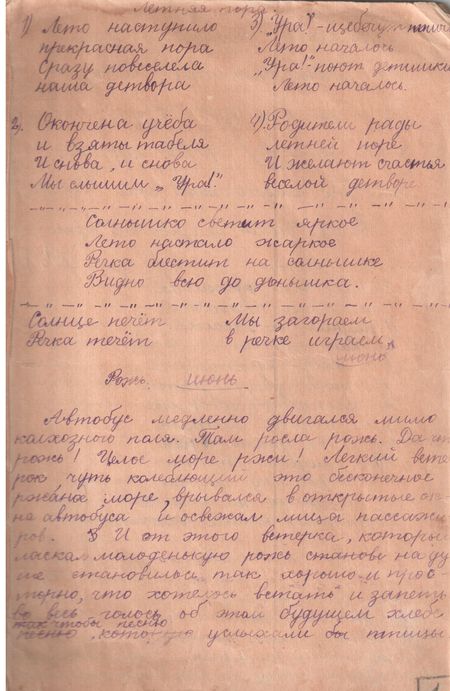 Летняя пора.
1) Лето наступило
прекрасная пора
Сразу повеселела
наша детвора
2) Окончена учёба
и взяты табеля
И снова, и снова
Мы слышим „Ура!"
3) „Ура!" - щебечут птички
Лето началось
„Ура!" - поют детишки
Лето началось.
4) Родители рады
летней поре
И желают счастья
веселой детворе
Солнышко светит яркое
Лето настало жаркое
Речка блестит на солнышке
Видно всю до донышка.
Солнце печёт
Речка течёт
Мы загораем
в речке играем
июнь
Рожь. июнь
Автобус медленно двигался мимо
колхозного поля. Там росла рожь. Да что
рожь! Целое море ржи! Легкий вете
рок чуть колеблющий это бесконечное
ржаное море, врывался в открытые ок-
на автобуса и освежал лица пассажи
ров. И от этого ветерка, который
ласкал молоденькую рожь на ду
ше становилось так хорошо и прос-
торно, что хотелось встать и запеть
во весь голос об этом будущем хлебе
так чтобы песню
песню, которую услыхали бы птицы